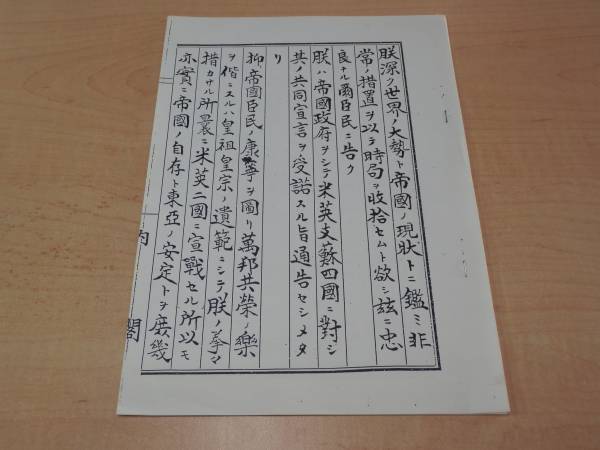 朕深ク世界ノ大勢ト帝國ノ現狀トニ鑑ミ非
常ノ措置ヲ以テ時局ヲ收拾セムト欲シ茲ニ忠
良ナル爾臣民ニ告ク
朕ハ帝國政府ヲシテ米英支蘇四國ニ對シ
其ノ共同宣言ヲ受諾スル旨通告セシメタ
リ
抑〻帝國臣民ノ康寧ヲ圖リ萬邦共榮ノ樂
ヲ偕ニスルハ皇祖皇宗ノ遺範ニシテ朕ノ拳〻
措カサル所曩ニ米英二國ニ宣戰セル所以モ
亦實ニ帝國ノ自存ト東亞ノ安定トヲ庶幾
内閣